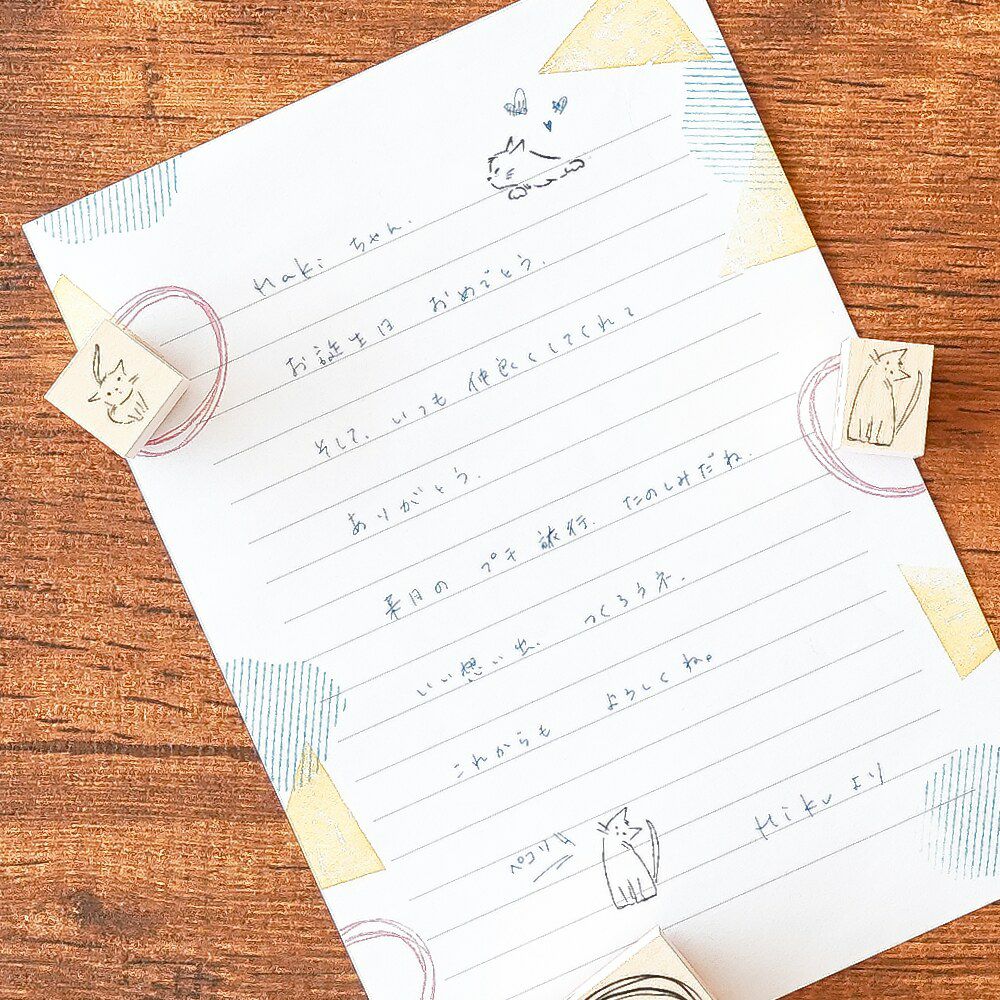 Maki ちゃん.
お誕生日 おめでとう.
そして、いつも 仲良くしてくれて
ありがとう.
来月の プチ 旅行. たのしみだね.
いい想い出、 つくろうネ.
これからも よろしくね。
Miku より
ペコリ